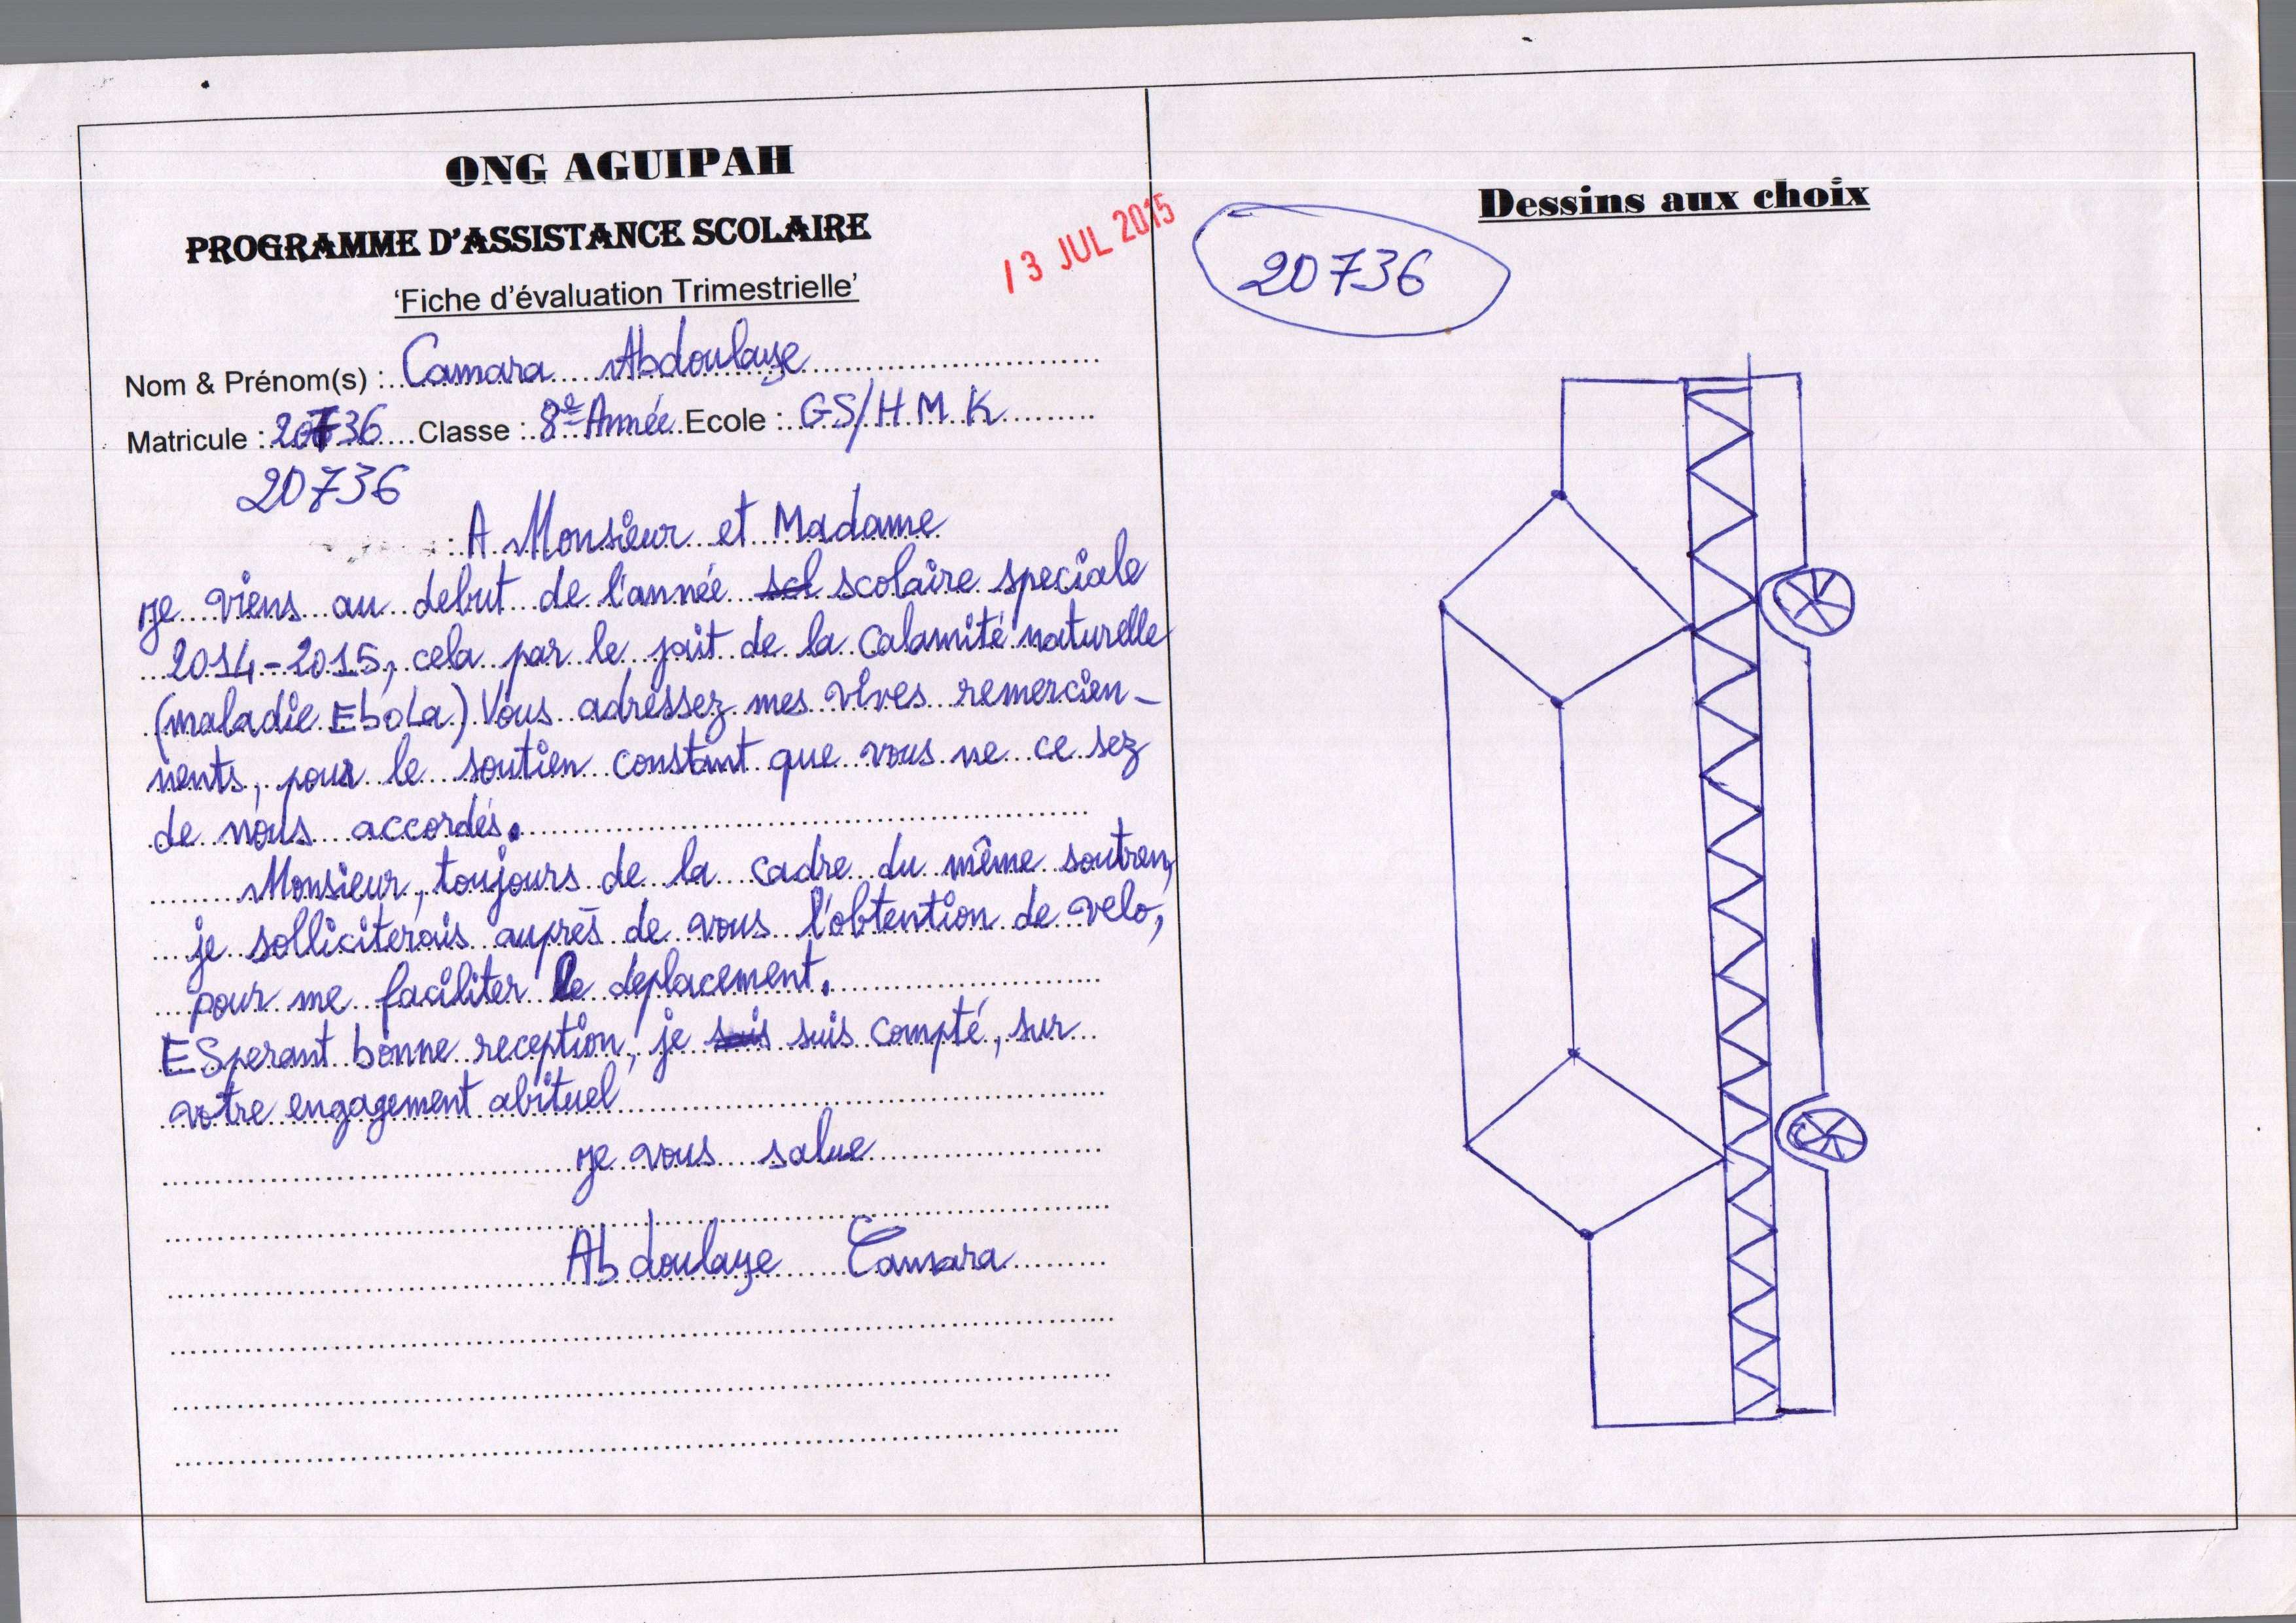 ONG AGUIPAH
PROGRAMME D'ASSISTANCE SCOLAIRE
'Fiche d'évaluation Trimestrielle'
13 JUL 2015
Nom & Prénom(s) : Camara Abdoulaye
Matricule : 20736 Classe : 8e Année Ecole : GS/H.M.K
20736
: A Monsieur et Madame
Je viens au debut de l'année scl scolaire speciale
2014-2015, cela par le fait de la calamité naturelle
(maladie EboLa) Vous adressez mes vives remercien-
nents, pour le soutien constant que vous ne ce sez
de nous accordés.
Monsieur, toujours de la cadre du même soutren,
je solliciterais auprès de vous l'obtention de velo,
pour me faciliter le deplacement.
ESperant bonne reception, je suis suis compté, sur
votre engagement abituel
Je vous salue
Abdoulaye Camara
Dessins aux choix
20736